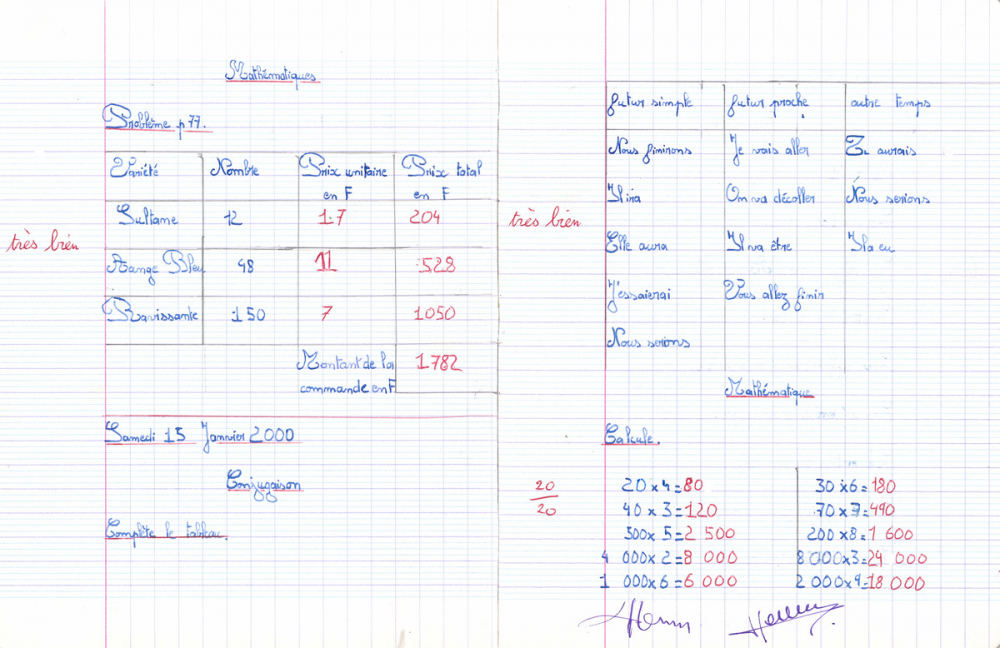 Mathématiques
Problème p 77.
Variété Nombre Prix unitaire en F Prix total en F
Sultane 12 17 204
très bien
Range Bleu 48 11 528
Ravissante 150 7 1050
Montant de la commande en F 1782
Samedi 15 Janvier 2000
Conjugaison
Complète le tableau.
futur simple futur proche autre temps
Nous finirons Je vais aller Tu aurais
Il ira On va décoller Nous serions
très bien
Elle aura Il va être Il a eu
J'essaierai Vous allez finir
Nous serons
Mathématique
Calcule.
20
20
20 x 4 = 80 30 x 6 = 180
40 x 3 = 120 70 x 7 = 490
500 x 5 = 2 500 200 x 8 = 1 600
4 000 x 2 = 8 000 8 000 x 3 = 24 000
1 000 x 6 = 6 000 2 000 x 9 = 18 000